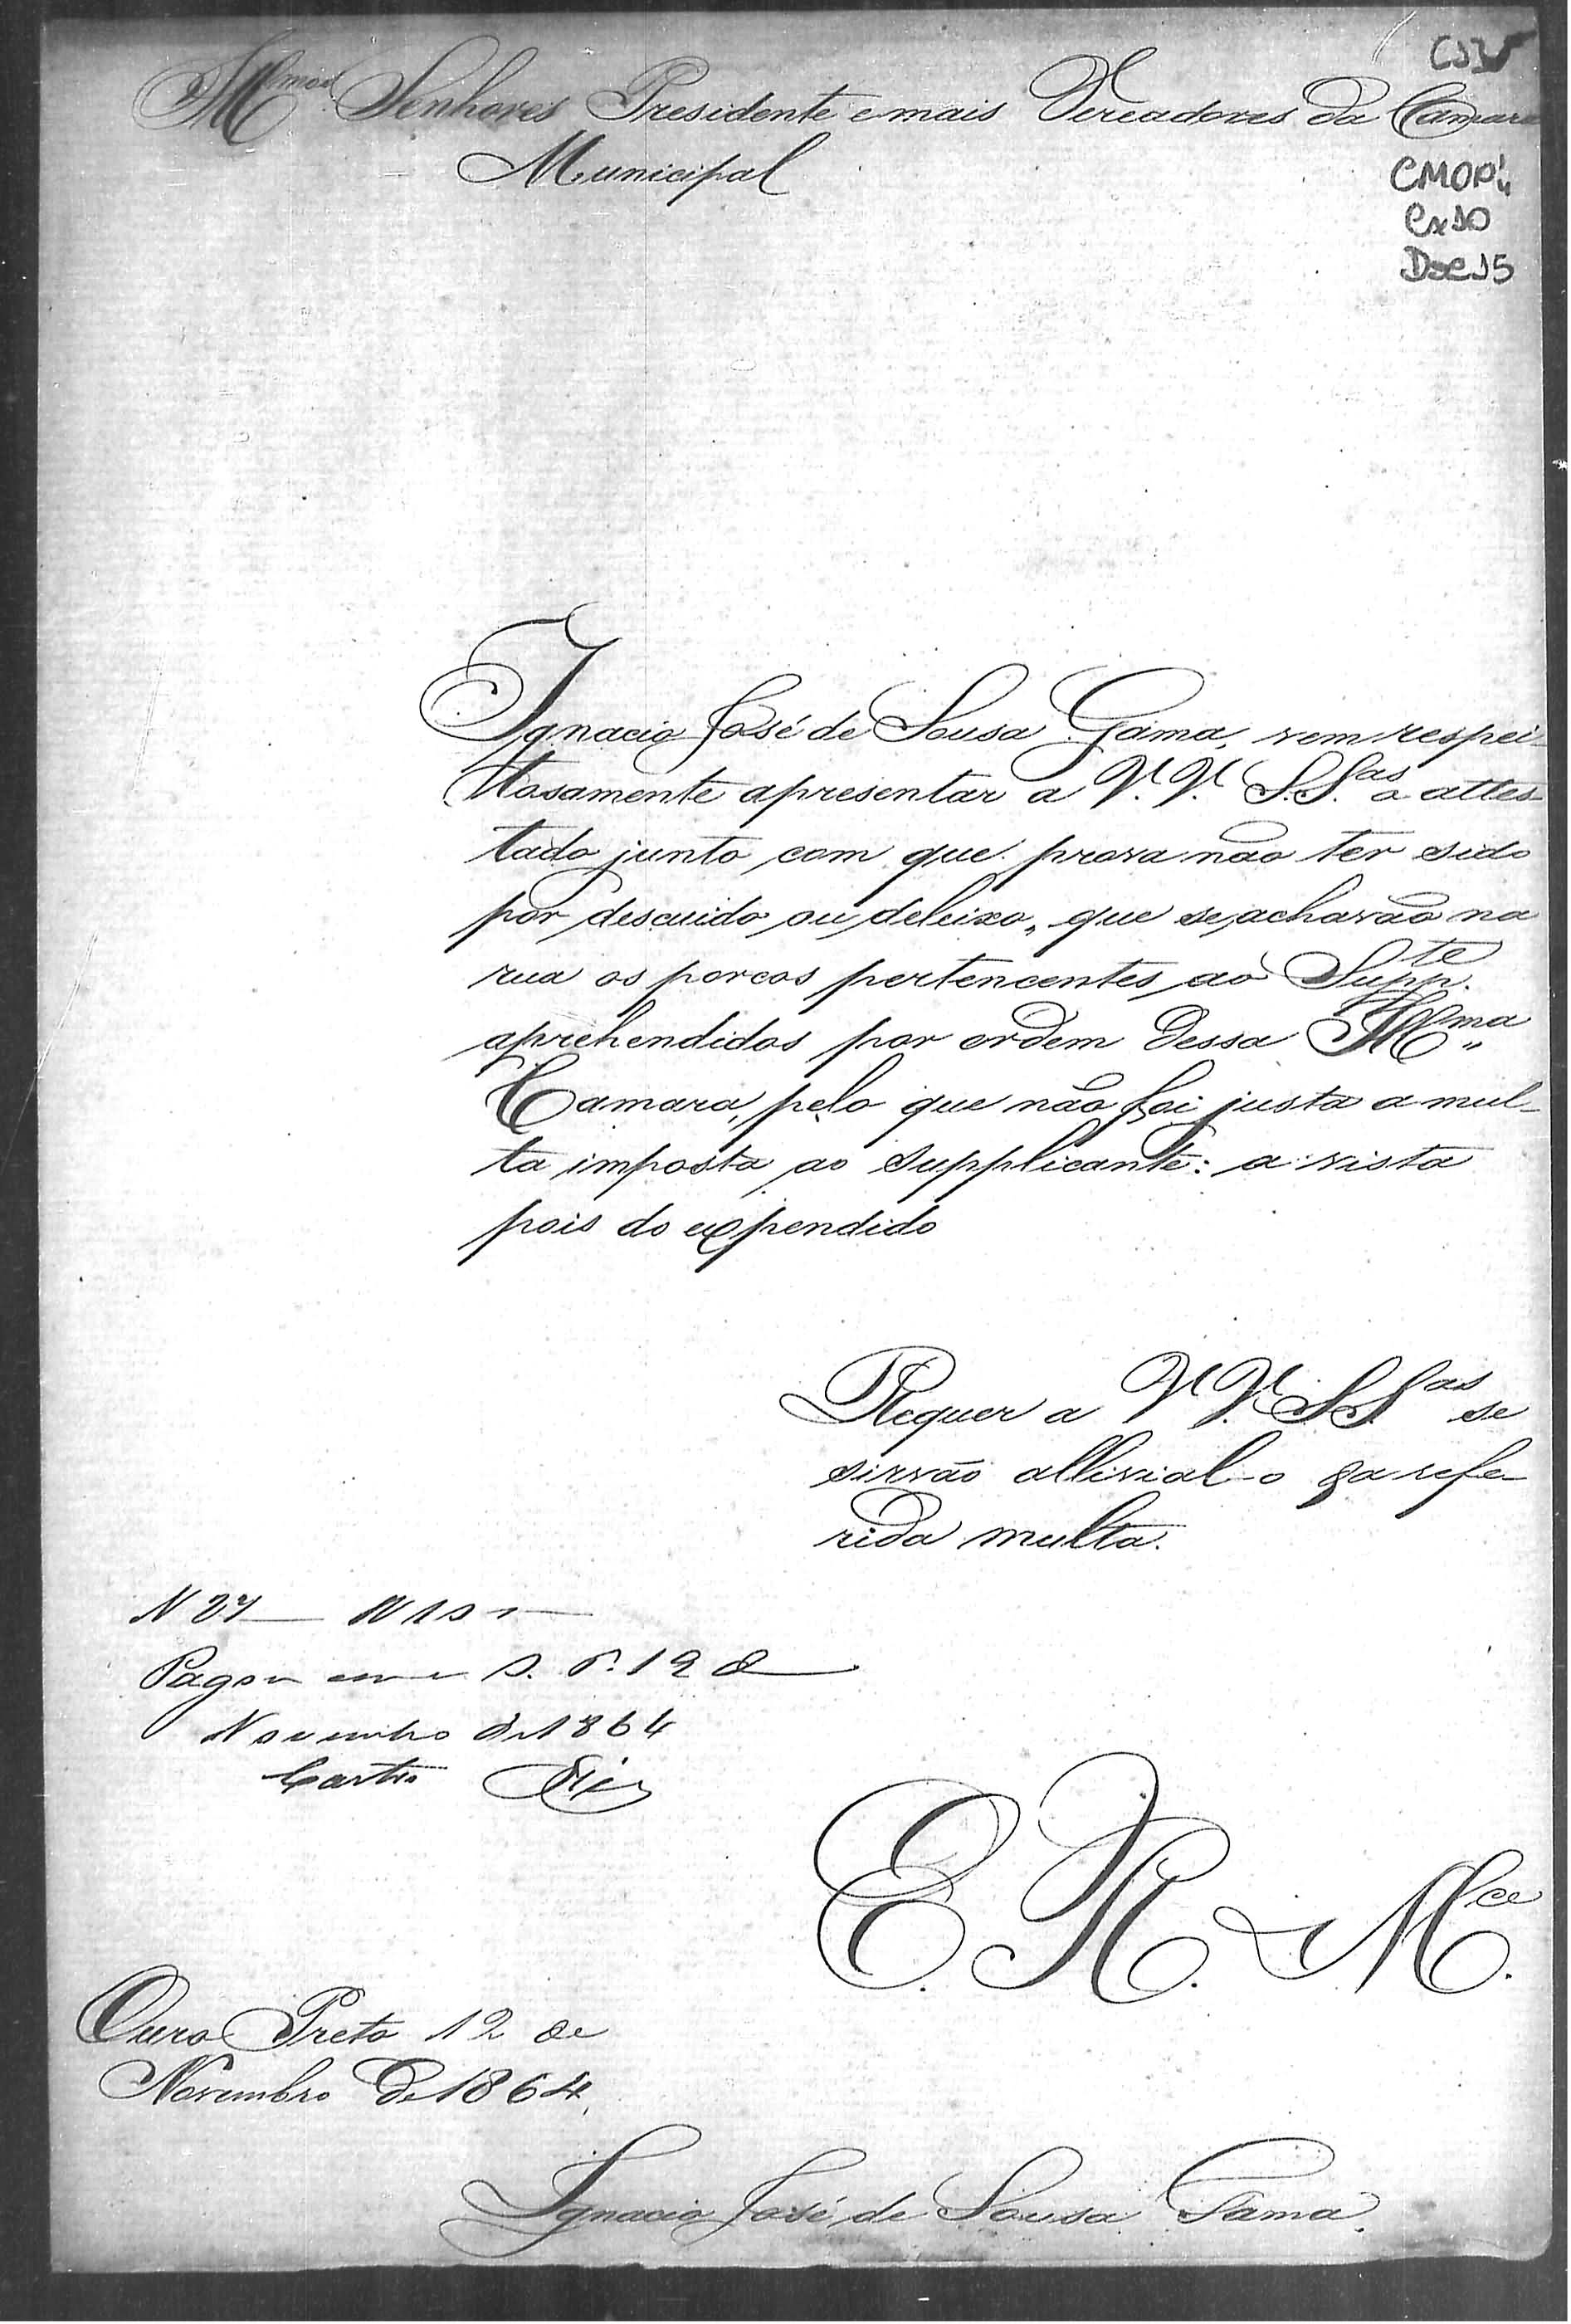 Illmos. Senhores Presidente e mais Vereadores da Camara
Municipal
CMOP
Cx10
Doc 15
Ignacio José de Sousa Gama, vem respei-
ttosamente apresentar a V.V. S.S.as o attes-
tado junto com que prova não ter sido
por descuido ou deleixo, que se achavão na
rua os porcos pertencentes ao Suppte.
aprehendidos por ordem dessa Illma
Camara, pelo que não foi justa a mul-
ta imposta ao supplicante: a vista
pois do expendido
Requer a V.V. S.S.as se
sirvão allivial-o da refe-
rida multa.
N 27
Pagou 12 de
Novembro de 1864
Castro
E. R. Mce.
Ouro Preto 12 de
Novembro de 1864.
Ignacio José de Sousa Gama.